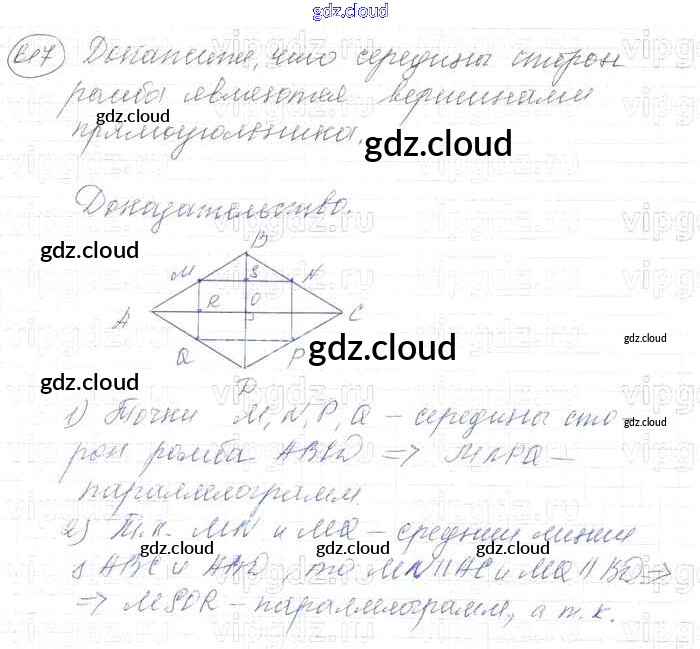 gdz.cloud
617 Докажите, что середины сторон
ромба являются вершинами
gdz.cloud
прямоугольника.
gdz.cloud
Доказательство.
gdz.cloud
B
M S N
A R O C
gdz.cloud
Q P
gdz.cloud
D
gdz.cloud
1) Точки M, N, P, Q – середины сто-
gdz.cloud
рон ромба ABCD => MNPQ –
параллелограмм.
2) Т.к. MN и MQ – средние линии
gdz.cloud gdz.cloud gdz.cloud
ABC и ABD, то MN || AC и MQ || BD =>
=> MSOR – параллелограмм, а т.к.